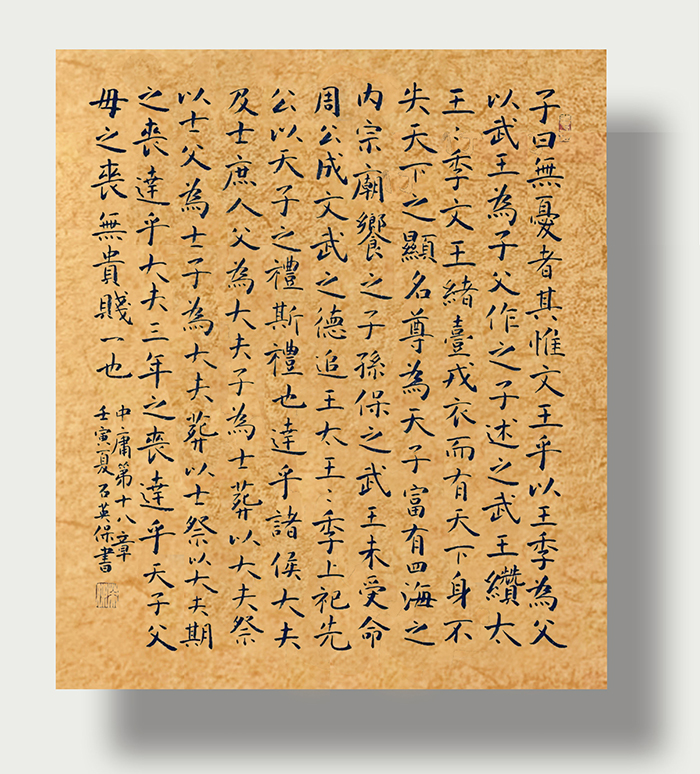 子曰無憂者其惟文王乎以王季為父
以武王為子父作之子述之武王纘太
王〻季文王緒臺戎衣而有天下身不
失天下之顯名尊為天子富有四海之
内宗廟饗之子孫保之武王未受命
周公成文武之德追王太王〻季上祀先
公以天子之禮斯禮也達乎諸侯大夫
及士庶人父為大夫子為士葬以大夫祭
以士父為士子為大夫葬以士祭以大夫期
之喪達乎大夫三年之喪達乎天子父
母之喪無貴賤一也
中庸第十八章
壬寅夏石英保書